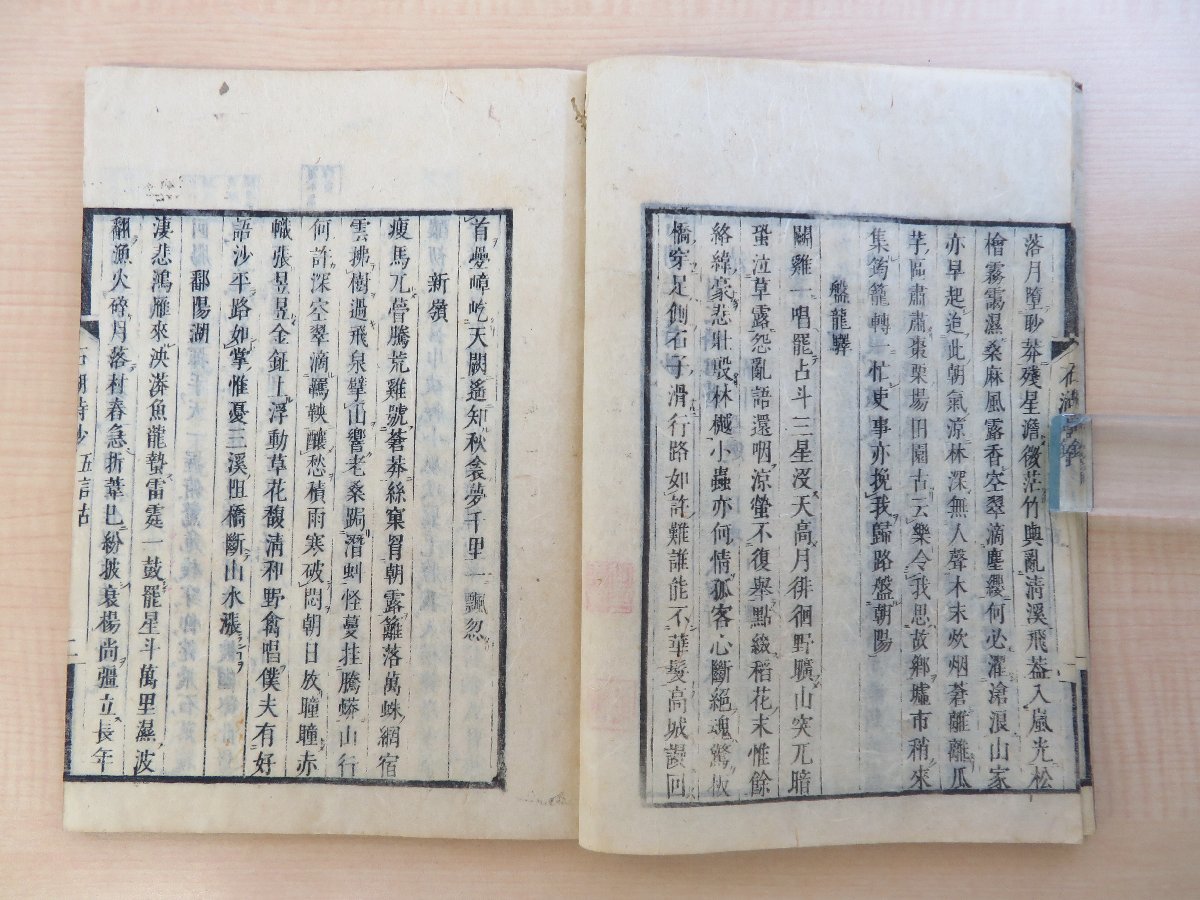 落月墮眇莽殘星澹微茫竹輿亂清溪飛葢入嵐光松
檜霧靄濕桑麻風露香空翠滴塵纓何必濯滄浪山家
亦早起造此朝氣涼林深無人聲木末炊烟蒼離離瓜
芋區肅肅棗栗場田園古云樂令我思故鄉墟市稍來
集筠籠轉一忙吏事亦挽我歸路盤朝陽
盤龍驛
闗雞一唱罷占斗三星沒天高月徘徊野曠山突兀暗
蛩泣草露怨亂語還咽涼螢不復舉點綴稻花末惟餘
絡緯豪悲壯殷林樾小蟲亦何情孤客心斷絕魂驚板
橋穿足側石子滑行路如許難誰能不華髮高城謾回
首疊嶂屹天闕遙知秋衾夢千里一飄忽
新嶺
瘦馬兀瞢騰荒雞號蒼莽絲窠罥朝露籬落萬蛛網宿
雲拂樹過飛泉擘山響老桑跼潛虯怪蔓挂騰蟒山行
何許深空翠滴羈鞅釀愁積雨寒破悶朝日放曈曈赤
幟張昱昱金鉦上浮動草花馥清和野禽唱僕夫有好
語沙平路如掌惟憂三溪阻橋斷山水漲
鄱陽湖
淒悲鴻雁來泱漭魚龍蟄雷霆一鼓罷星斗萬里濕波
翻漁火碎月落村舂急折葦已紛披衰楊尚彊立長年
石湖詩鈔五言古 二